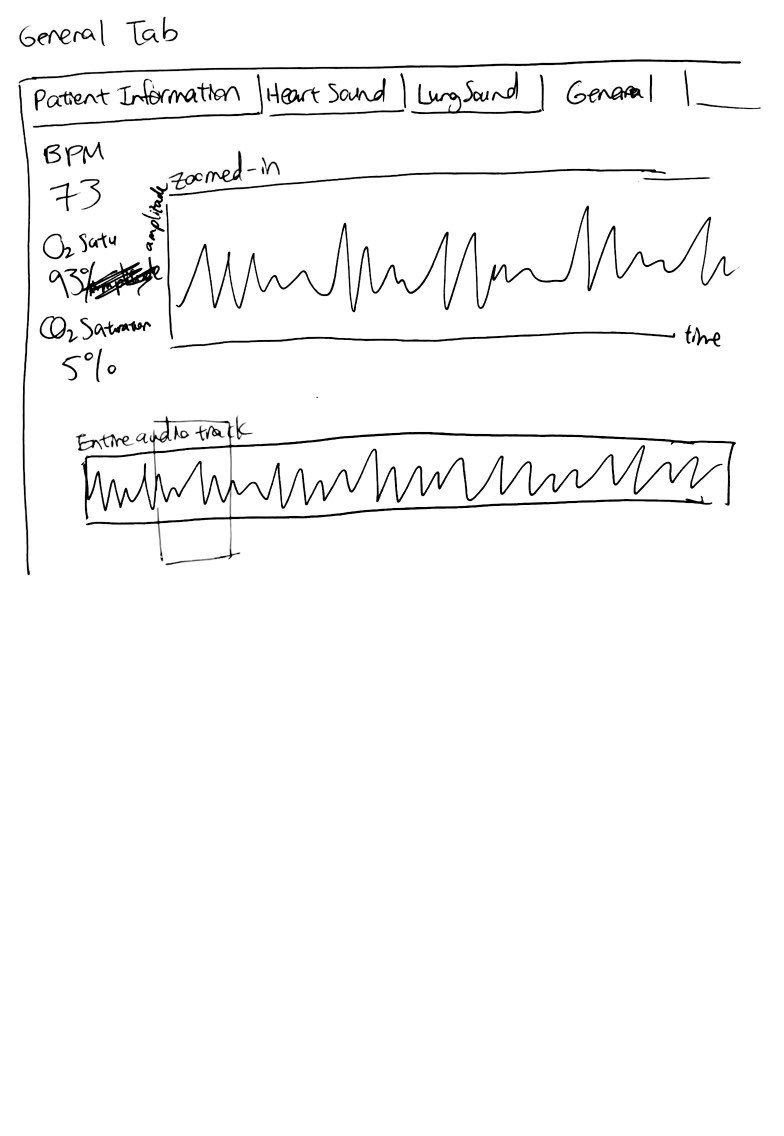 General Tab
Patient Information Heart Sound Lung Sound General
BPM
73
O2 Satu
93%
CO2 Saturation
5%
zoomed-in
amplitude
time
Entire audio track